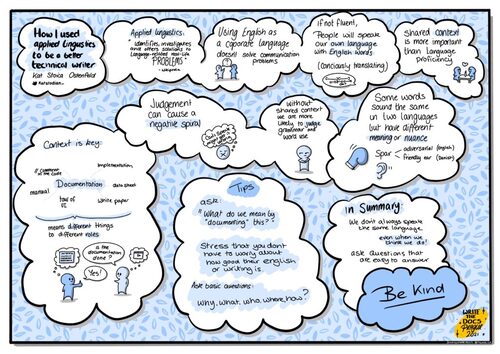 How I used
applied linguistics
to be a better
technical writer
Kat Stoica Ostenfeld
Applied linguistics:
identifies, investigates
and offers solutions to
language-related real-life
PROBLEMS
- Wikipedia
Using English as
a corporate language
doesn't solve communication
problems
if not fluent,
People will speak
our own language
with English words
(conciously translating)
Shared context
is more important
than language
proficiency
Judgement
can cause a
negative spiral
Without
shared context
we are more
likely to judge
grammar and
word use
Some words
sound the same in
two languages
but have different
meaning or nuance
Spar
adversarial (English)
Friendly ear (Danish)
Context is key:
Implementation
comment
in the code
manual
Documentation
data sheet
white paper
means different things
to different roles
is the
documentation
done?
Yes!
Tips
ask:
"What do we mean by
"documenting" this?
Stress that you don't
have to worry about
how good their english
or writing is.
Ask basic questions:
Why, what, who, where, how?
in Summary:
We don't always speak
the same language
even when we
think we do!
ask questions that
are easy to answer
Be Kind
WRITE
THE
DOCS
Prague
2021